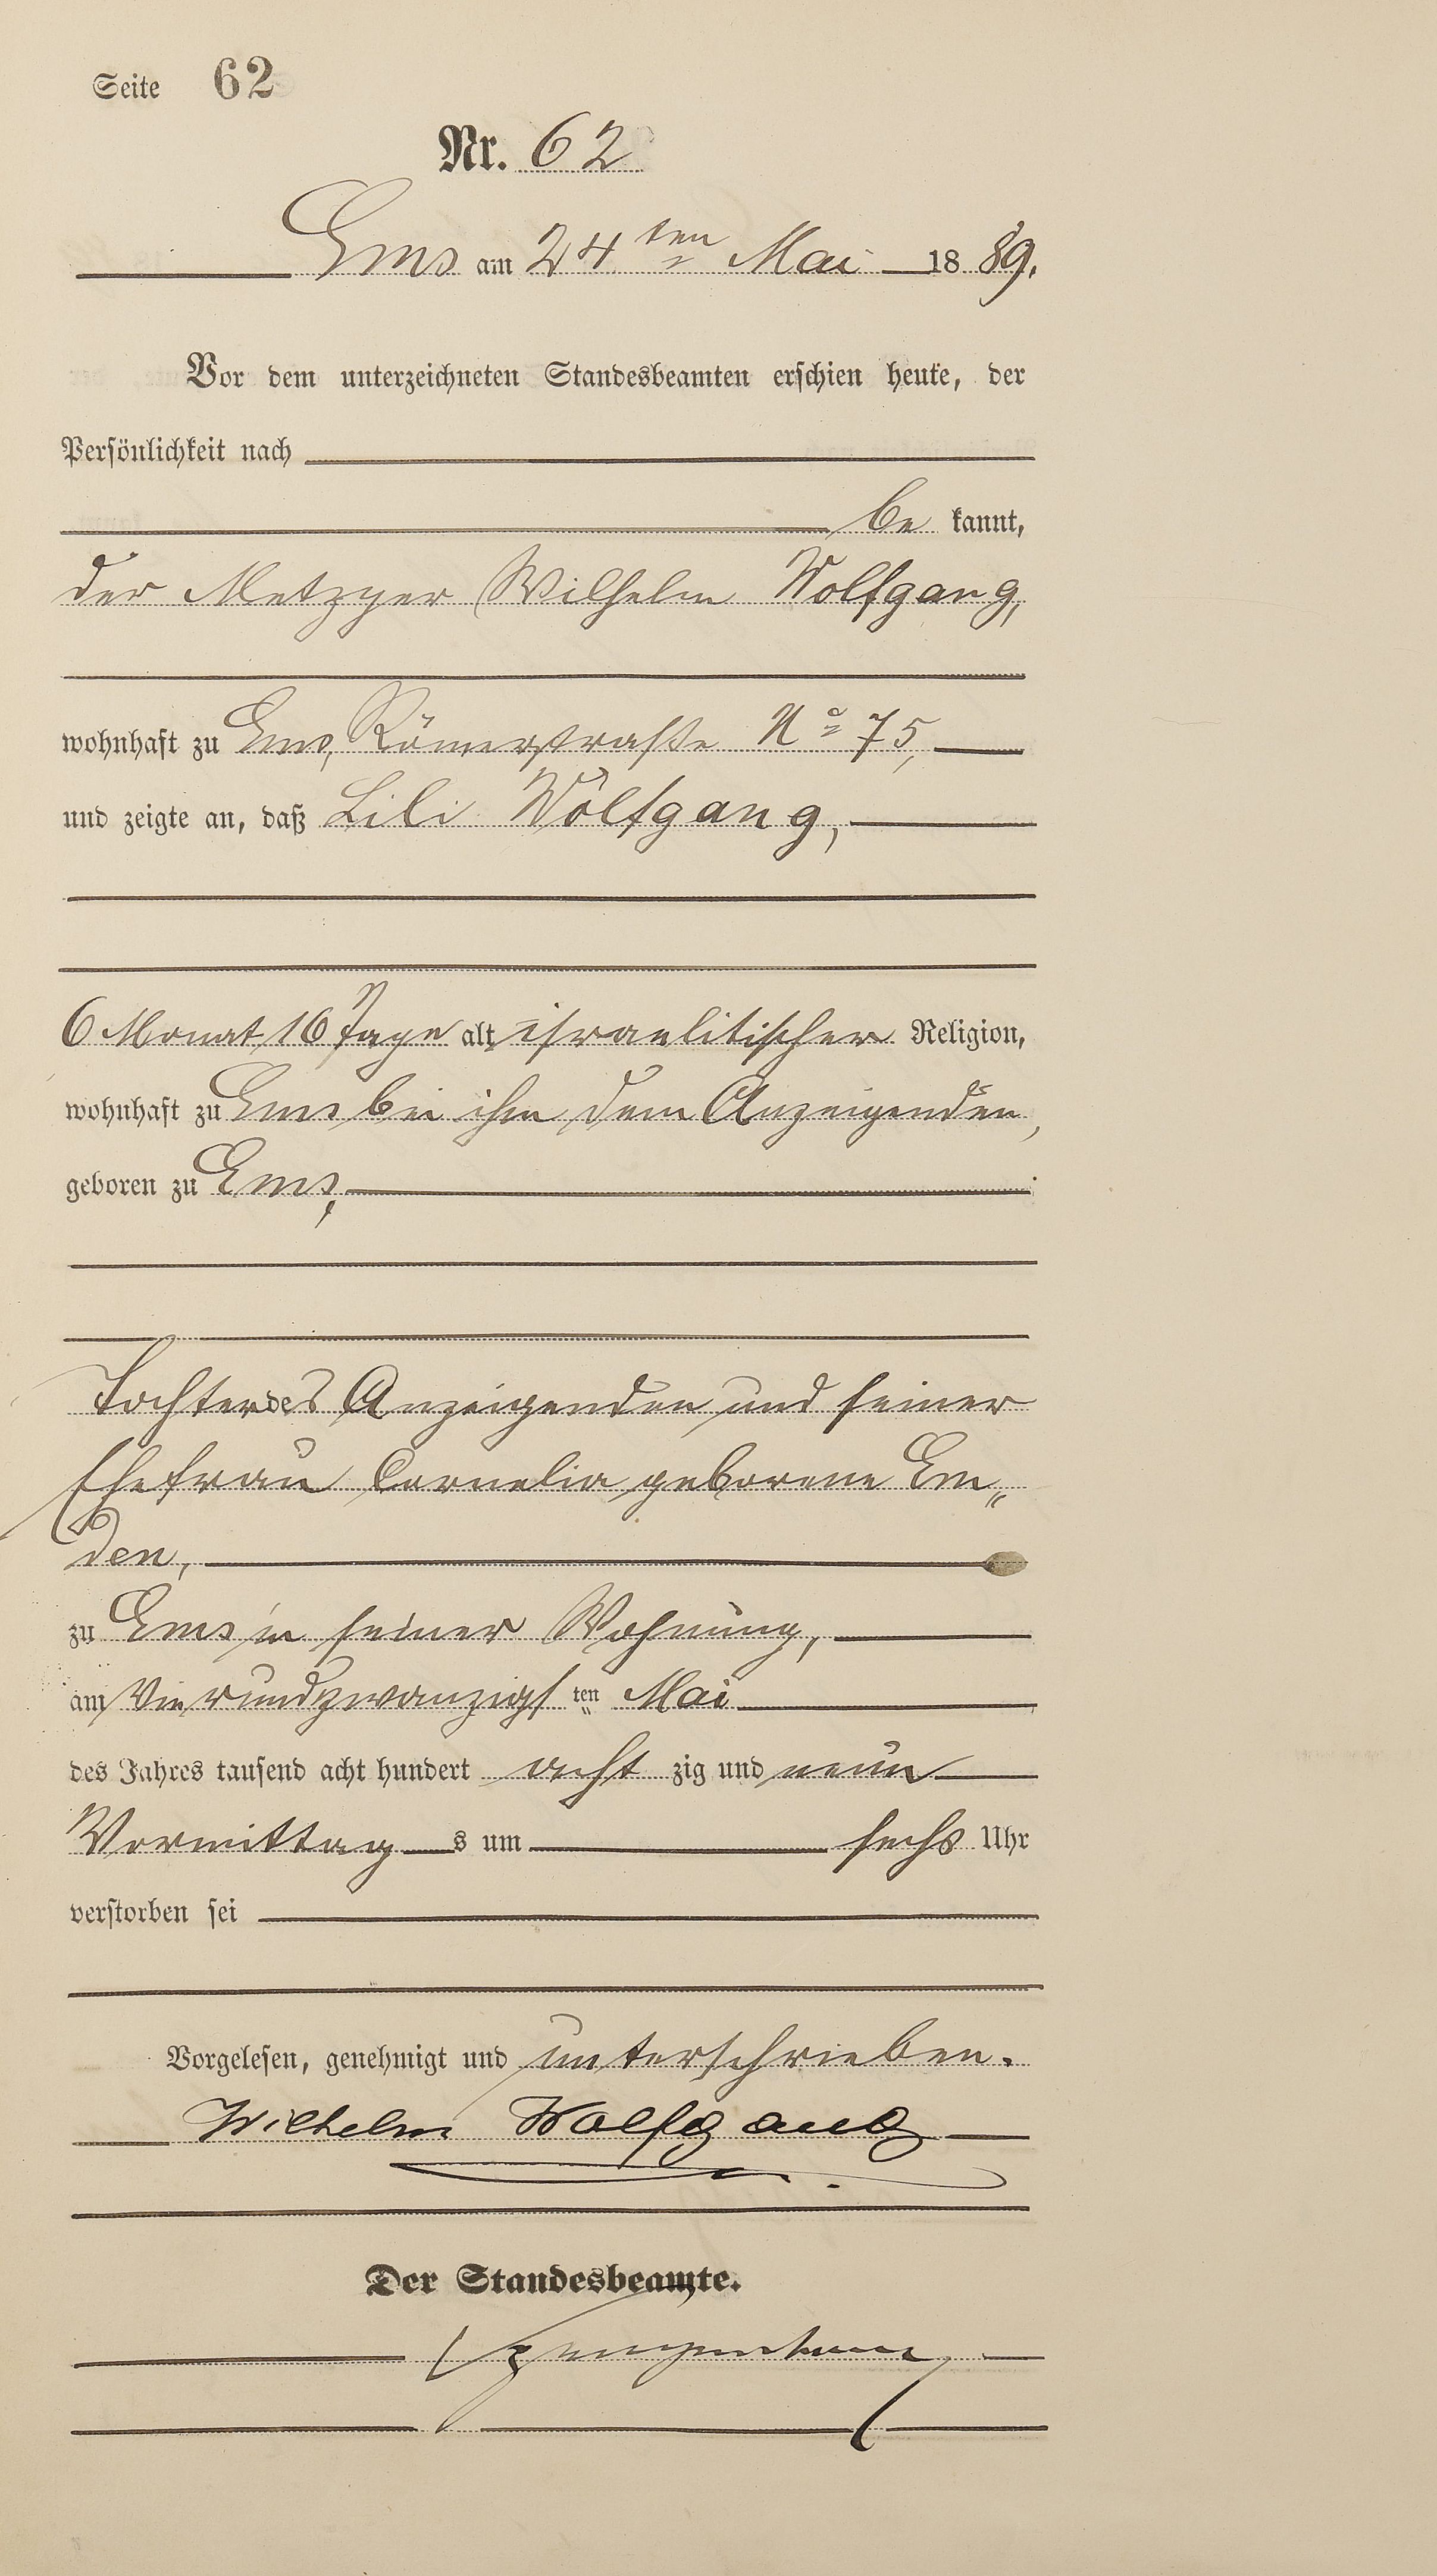 Seite 62
Nr. 62
Ems am 24ten Mai 1889.
Vor dem unterzeichneten Standesbeamten erschien heute, der
Persönlichkeit nach
be kannt,
der Metzger Wilhelm Wolfgang,
wohnhaft zu Ems, Römerstraße No 75,
und zeigte an, daß Lili Wolfgang,
6 Monat, 16 Tage alt, israelitischer Religion,
wohnhaft zu Ems bei ihm dem Anzeigenden,
geboren zu Ems,
Tochter des Anzeigenden und seiner
Ehefrau Cornelia geborene Em„
den,
zu Ems in seiner Wohnung,
am vierundzwanzigsten Mai
des Jahres tausend acht hundert acht zig und neun
Vormittag s um sechs Uhr
verstorben sei
Vorgelesen, genehmigt und unterschrieben.
Wilhelm Wolfgang
Der Standesbeamte.